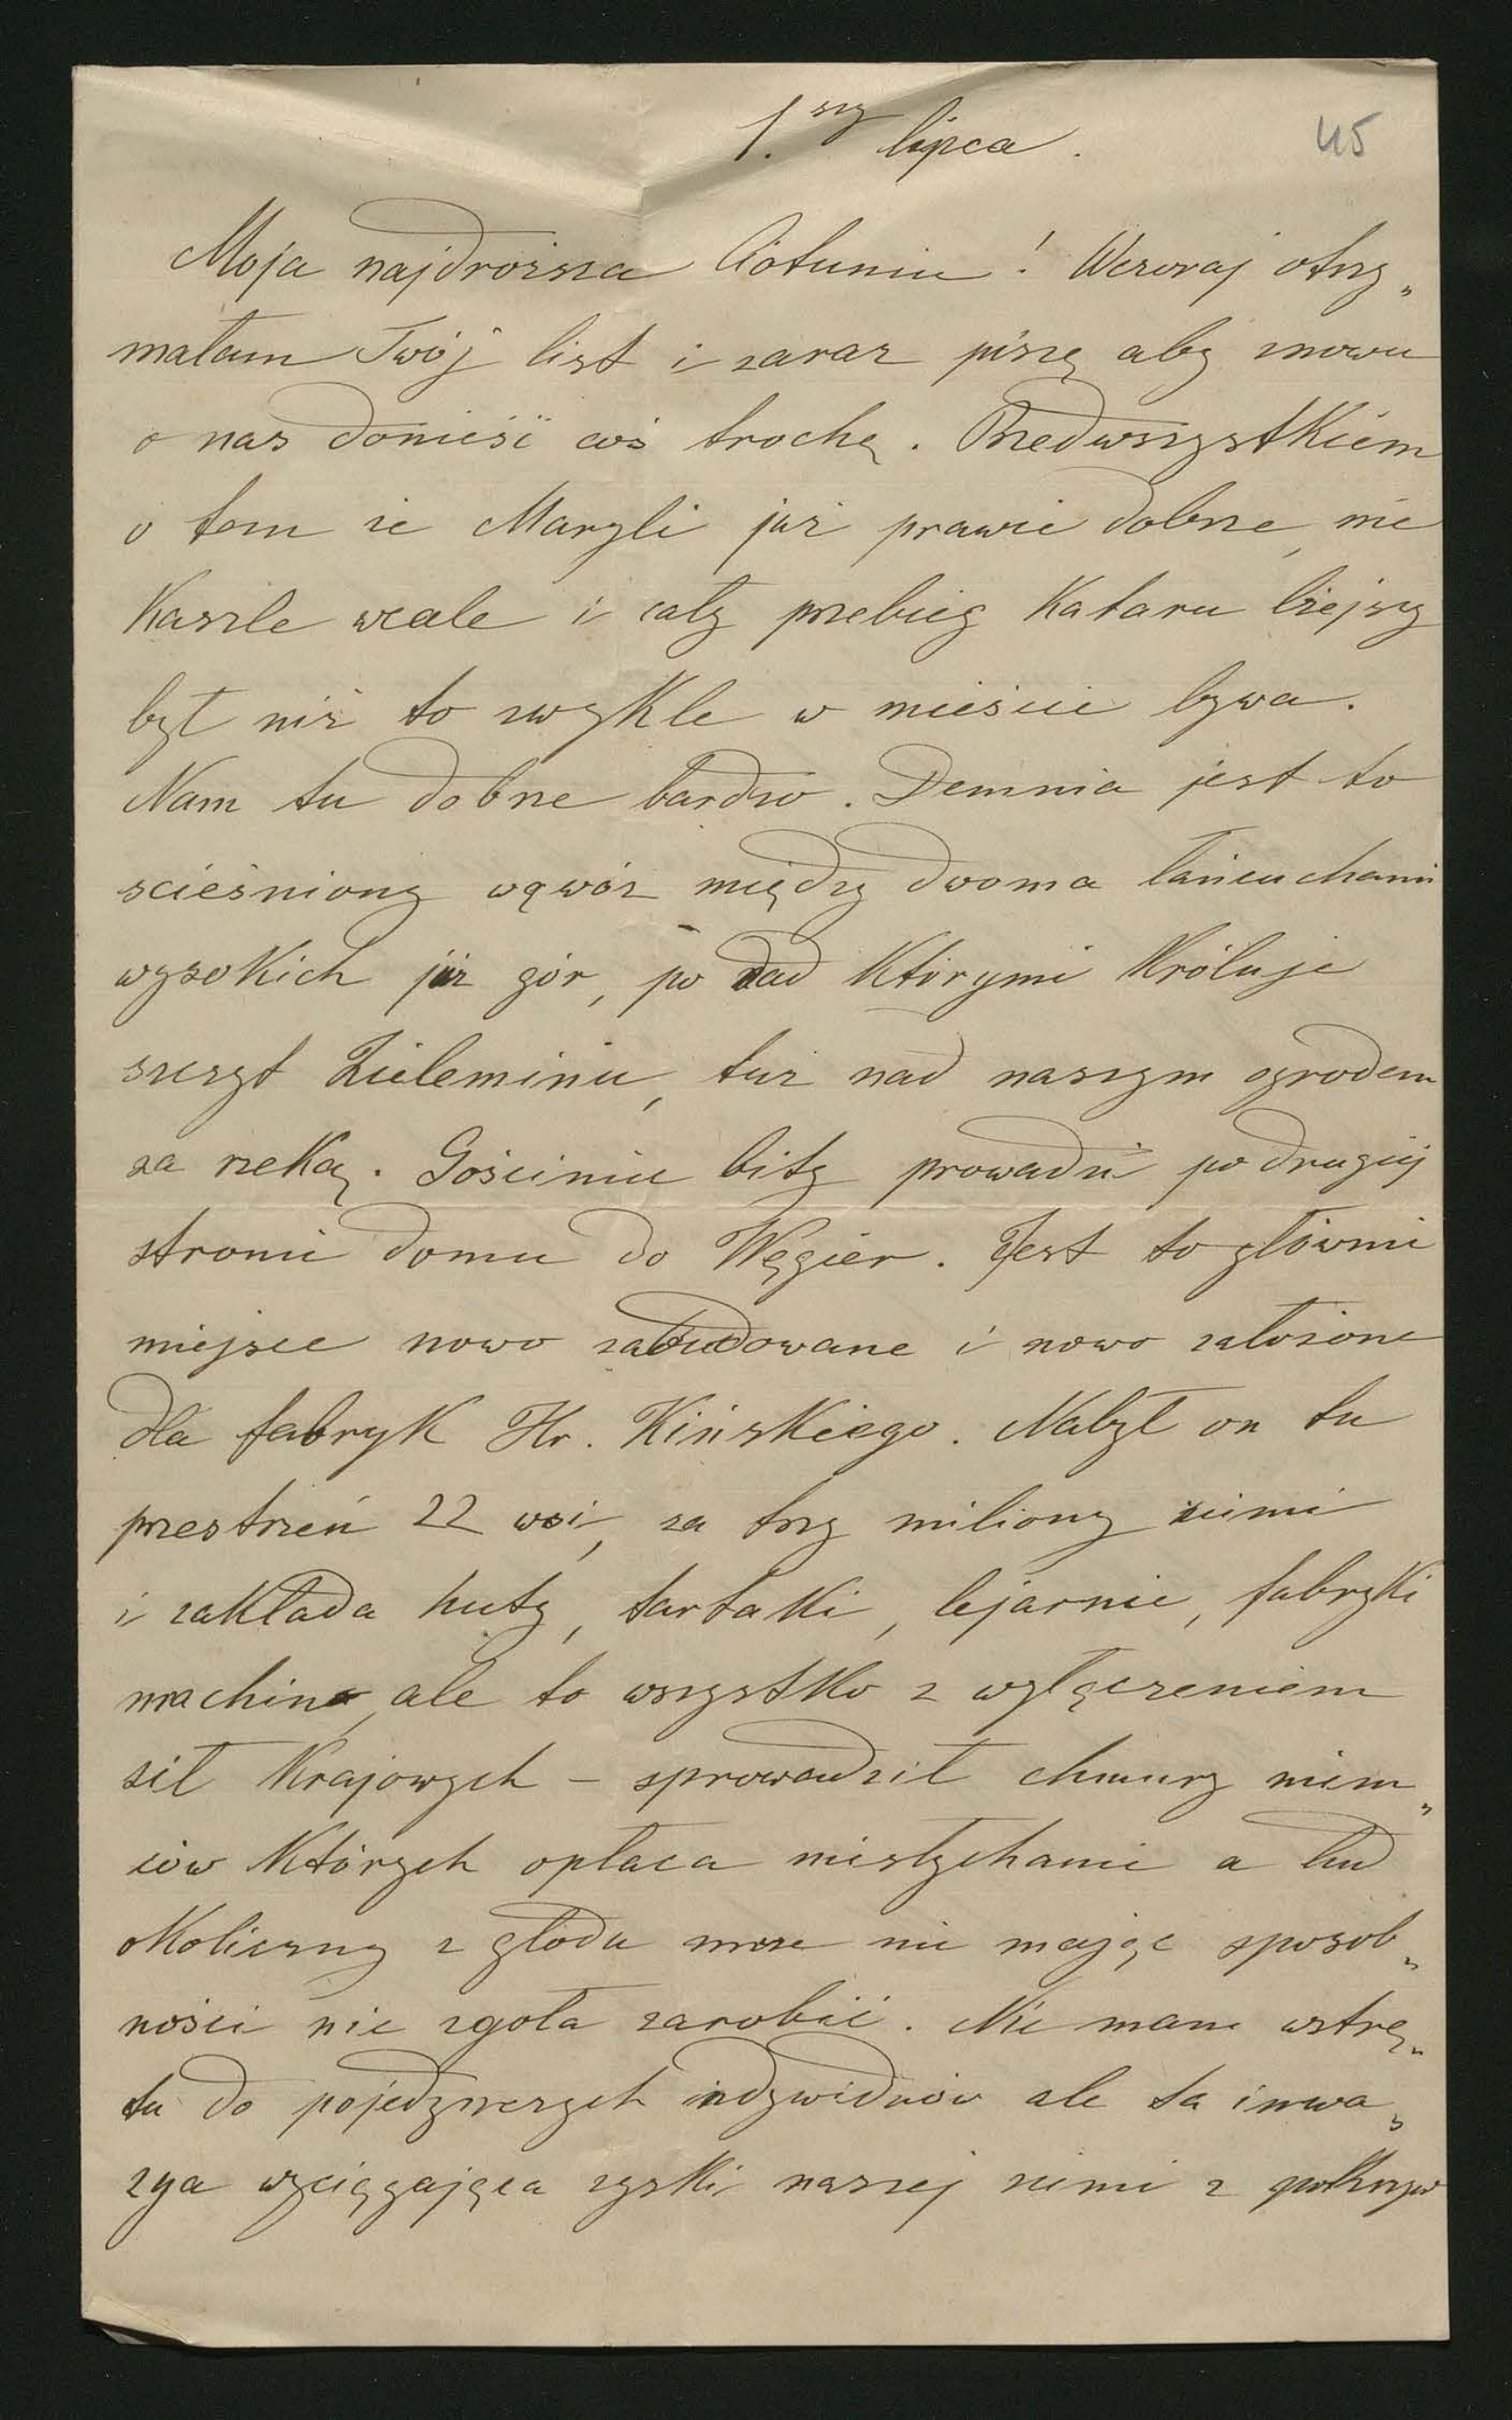 1.szy lipca.
45
Moja najdroższa Ciotuniu! Wczoraj otrzy„
małam Twój list i zaraz piszę aby znowu
o nas donieść coś trochę. Przedwszystkiem
o tem że Maryli już prawie dobrze, nie
kaszle wcale i cały przebieg kataru lżejszy
był niż to zwykle w mieście bywa.
Nam tu dobrze bardzo. Demnia jest to
ścieśniony wąwóz między dwoma łańcuchami
wysokich już gór, po nad którymi króluje
szczyt Zieleminiu, tuż nad naszym ogrodem
za rzeką. Gościniec bity prowadzi po drugiej
stronie domu do Węgier. Jest to głównie
miejsce nowo zabudowane i nowo założone
dla fabryk Hr. Kińskiego. Nabył on tu
przestrzeń 22 wsi, za trzy miliony ziemi
i zakłada huty, tartaki, lejarnie, fabryki
machin, ale to wszystko z wyłączeniem
sił krajowych – sprowadził chmury niem„
ców których opłaca niesłychanie a lud
okoliczny z głodu mrze nie mając sposob„
ności nic zgoła zarobić. Nie mam wstrę„
tu do pojedynczych indywiduów ale ta inwa„
zya wyciągająca zyski naszej ziemi z